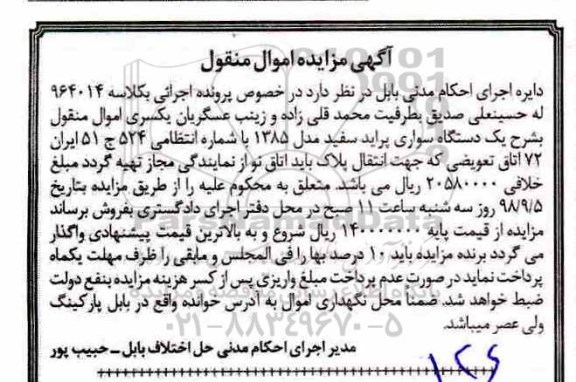 آگهی مزایده اموال منقول
دایره اجرای احکام مدنی بابل در نظر دارد در خصوص پرونده اجرائی بکلاسه ۹۶۴۰۱۴
له حسینعلی صدیق بطرفیت محمد قلی زاده و زینب عسگریان یکسری اموال منقول
بشرح یک دستگاه سواری پراید سفید مدل ۱۳۸۵ با شماره انتظامی ۵۲۴ ج ۵۱ ایران
۷۲ اتاق تعویضی که جهت انتقال پلاک باید اتاق نو از نمایندگی مجاز تهیه گردد مبلغ
خلافی ۲۰۵۸۰۰۰۰ ریال می باشد. متعلق به محکوم علیه را از طریق مزایده بتاریخ
۹۸/۹/۵ روز سه شنبه ساعت ۱۱ صبح در محل دفتر اجرای دادگستری بفروش برساند
مزایده از قیمت پایه ۱۴۰۰۰۰۰۰۰ ریال شروع و به بالاترین قیمت پیشنهادی واگذار
می گردد برنده مزایده باید ۱۰ درصد بها را فی المجلس و مابقی را ظرف مهلت یکماه
پرداخت نماید در صورت عدم پرداخت مبلغ واریزی پس از کسر هزینه مزایده بنفع دولت
ضبط خواهد شد. ضمنا محل نگهداری اموال به آدرس خوانده واقع در بابل پارکینگ
ولی عصر میباشد.
۰۲۱-۸۸۳۴۹۶۷۰-۵
مدیر اجرای احکام مدنی حل اختلاف بابل ــ حبیب پور